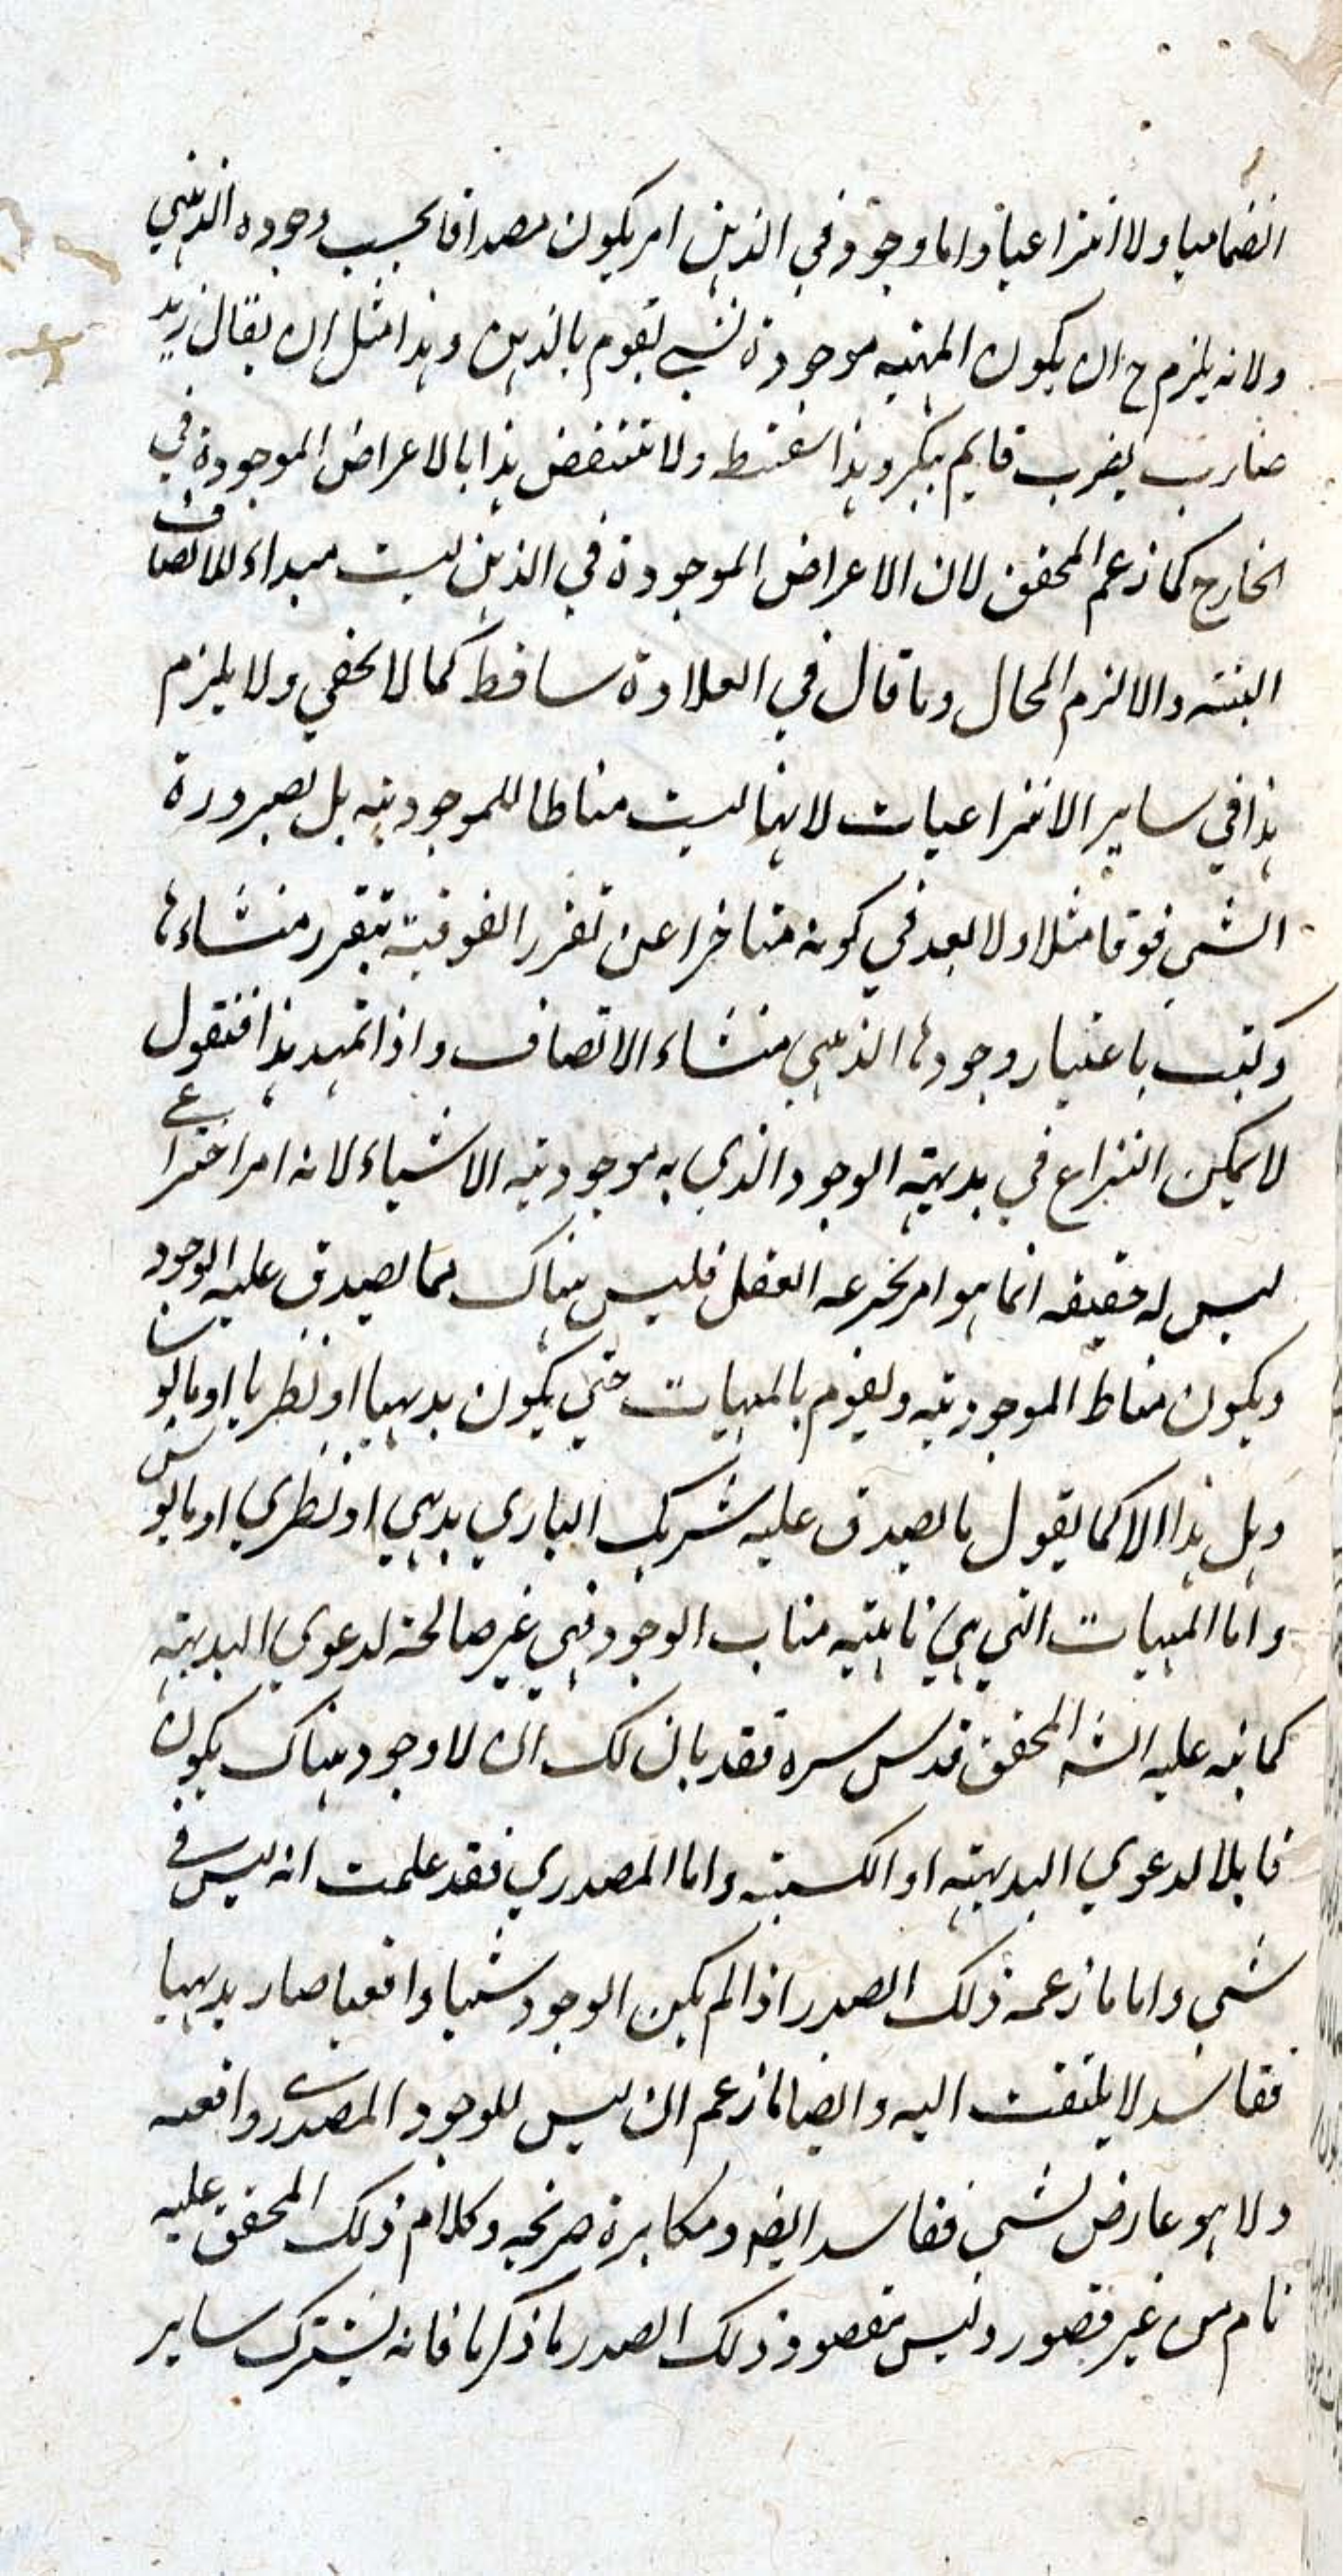 انضماميا ولا انتزاعيا واما وجود في الذهن امر يكون مصداقا بحسب وجوده الذهني
ولانه يلزم ح ان يكون المهيه موجودة لشي يقوم بالذهن وهذا مثل ان يقال زيد
ضارب بضرب قايم ببكر وهذا سفسطه ولا تنتقض هذا بالاعراض الموجودة في
الخارج كما زعم المحقق لان الاعراض الموجودة في الذهن ليست مبداء للاتصاف
البتته والا لزم المحال وما قال في العلاوة ساقط كما لا يخفي ولا يلزم
هذا في ساير الانتزاعيات لانها ليست مناطا للموجوديته بل لصيرورة
الشي فوقا مثلا ولا بعد في كونه متاخرا عن تقرر الفوقية بتقرر منشاءها
وكتب باعتبار وجودها الذهني منشاء الاتصاف واذا تمهد هذا فنقول
لا يمكن النزاع في بديهته الوجود الذي به موجوديته الاشياء لانه امر اختراعي
ليس له حقيقه انما هو امر يخترعه العقل فليس هناك مما يصدق عليه الوجود
ويكون مناط الموجوديته ويقوم بالمهيات حتي يكون بديهيا او نظريا او مايوسا
وهل هذا الا كما يقول ما يصدق عليه شريك الباري بديهي او نظري او مايوس
واما المهيات التي هي نائبته مناب الوجود فهي غير صالحة لدعوي البديهته
كما نبه عليه الشه المحقق قدس سره فقد بان لك ان لا وجود هناك يكون
قابلا لدعوي البديهته او الكسبته واما المصدري فقد علمت انه ليس في
شي واما ما زعمه ذلك الصدر اذا لم يكن الوجود شيا واقعيا صار بديهيا
فقاسد لا يلتفت اليه وايضا ما زعم ان ليس للوجود المصدري واقعيه
ولا هو عارض لشي ففاسد ايضه ومكابرة صريحه وكلام ذلك المحقق عليه
تام من غير قصور وليس مقصود ذلك الصدر ما ذكر ما فانه يشترك ساير